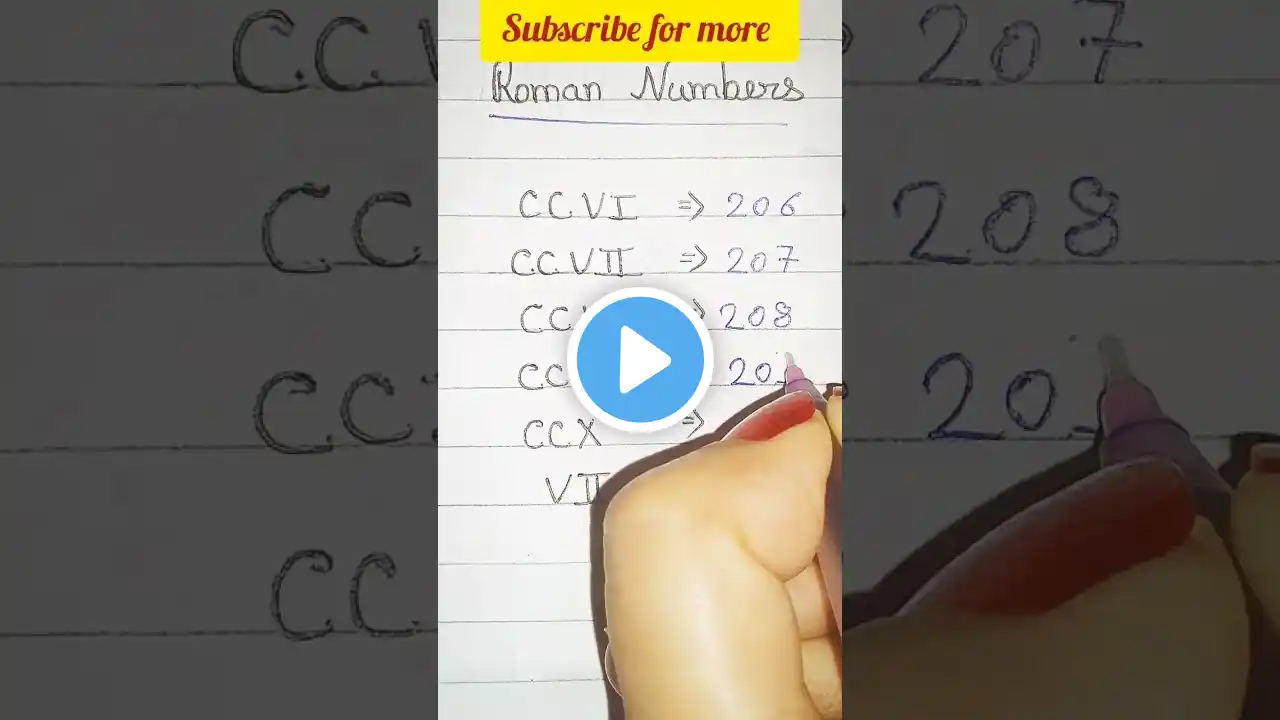 Subscribe for more
Roman Numbers
CCVI => 206
CCVII => 207
CC => 208
CC 20
CCX =>
VII